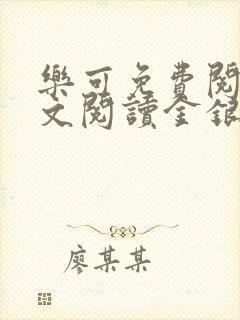 樂可免費閱
文閱讀金銀
廖某某